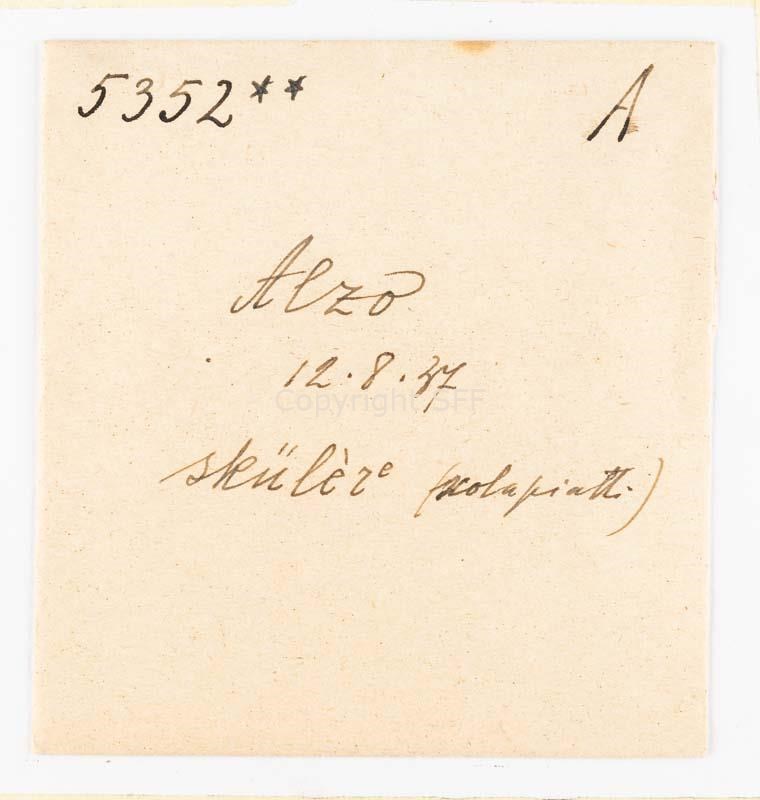 5352** A
Alzo
12.8.37
Copyright SFF
skülère (scolapiatti)